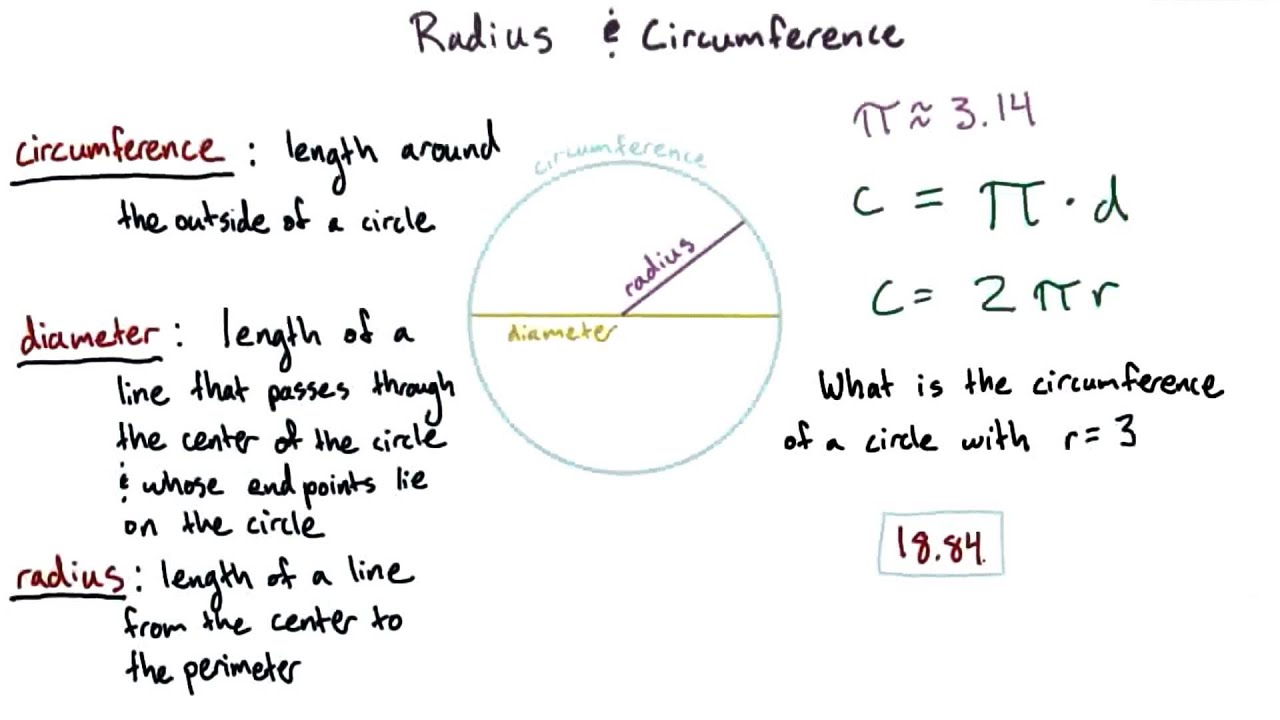 Radius & Circumference
circumference : length around
the outside of a circle
diameter : length of a
line that passes through
the center of the circle
& whose endpoints lie
on the circle
radius : length of a line
from the center to
the perimeter
circumference
radius
diameter
π ≈ 3.14
C = π · d
C = 2πr
What is the circumference
of a circle with r = 3
18.84